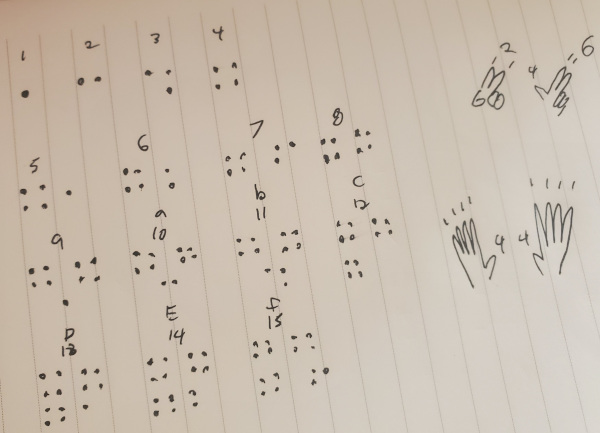 1 2 3 4
5 6 7 8
9 a 10 b 11 C 12
D 13 E 14 F 15
2 6 4 6
4 4